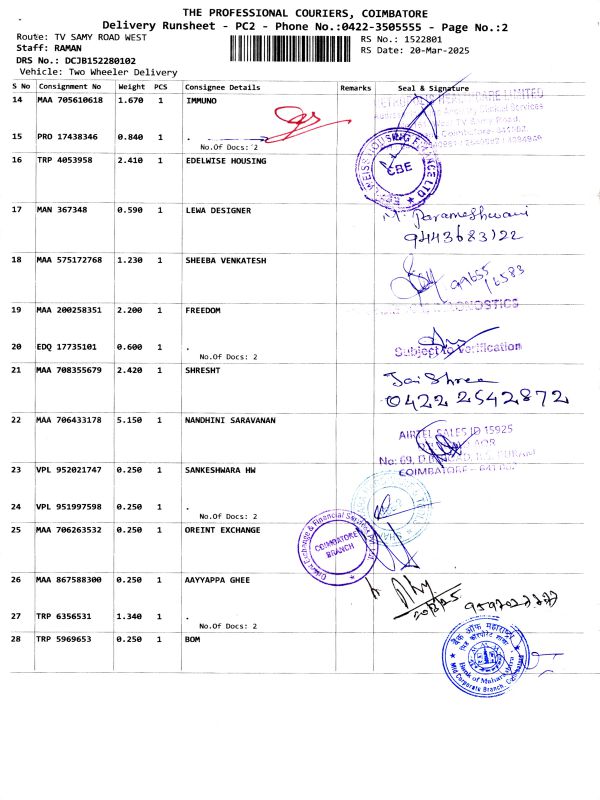 THE PROFESSIONAL COURIERS, COIMBATORE
Delivery Runsheet - PC2 - Phone No.:0422-3505555 - Page No.:2
Route: TV SAMY ROAD WEST
RS No.: 1522801
Staff: RAMAN
RS Date: 20-Mar-2025
DRS No.: DCJB152280102
Vehicle: Two Wheeler Delivery
S No Consignment No Weight PCS Consignee Details Remarks Seal & Signature
14 MAA 705610618 1.670 1 IMMUNO
15 PRO 17438346 0.840 1 .
No.Of Docs: 2
16 TRP 4053958 2.410 1 EDELWISE HOUSING
CBE
17 MAN 367348 0.590 1 LEWA DESIGNER
M. Parameshwari
9443683122
18 MAA 575172768 1.230 1 SHEEBA VENKATESH
99655
16583
19 MAA 200258351 2.200 1 FREEDOM
20 EDQ 17735101 0.600 1 .
Subject to Verification
No.Of Docs: 2
21 MAA 708355679 2.420 1 SHRESHT
Jai Shree
0422 2542872
22 MAA 706433178 5.150 1 NANDHINI SARAVANAN
AIRTEL SALES ID 15925
No: 69,
COIMBATORE - 641 002
23 VPL 952021747 0.250 1 SANKESHWARA HW
24 VPL 951997598 0.250 1 .
No.Of Docs: 2
25 MAA 706263532 0.250 1 OREINT EXCHANGE
Orient Exchange & Financial Services Pvt Ltd
COIMBATORE
BRANCH
26 MAA 867588300 0.250 1 AAYYAPPA GHEE
27 TRP 6356531 1.340 1 .
No.Of Docs: 2
28 TRP 5969653 0.250 1 BOM
बैंक ऑफ महाराष्ट्र
Bank of Maharashtra
Mid Corporate Branch, Coimbatore